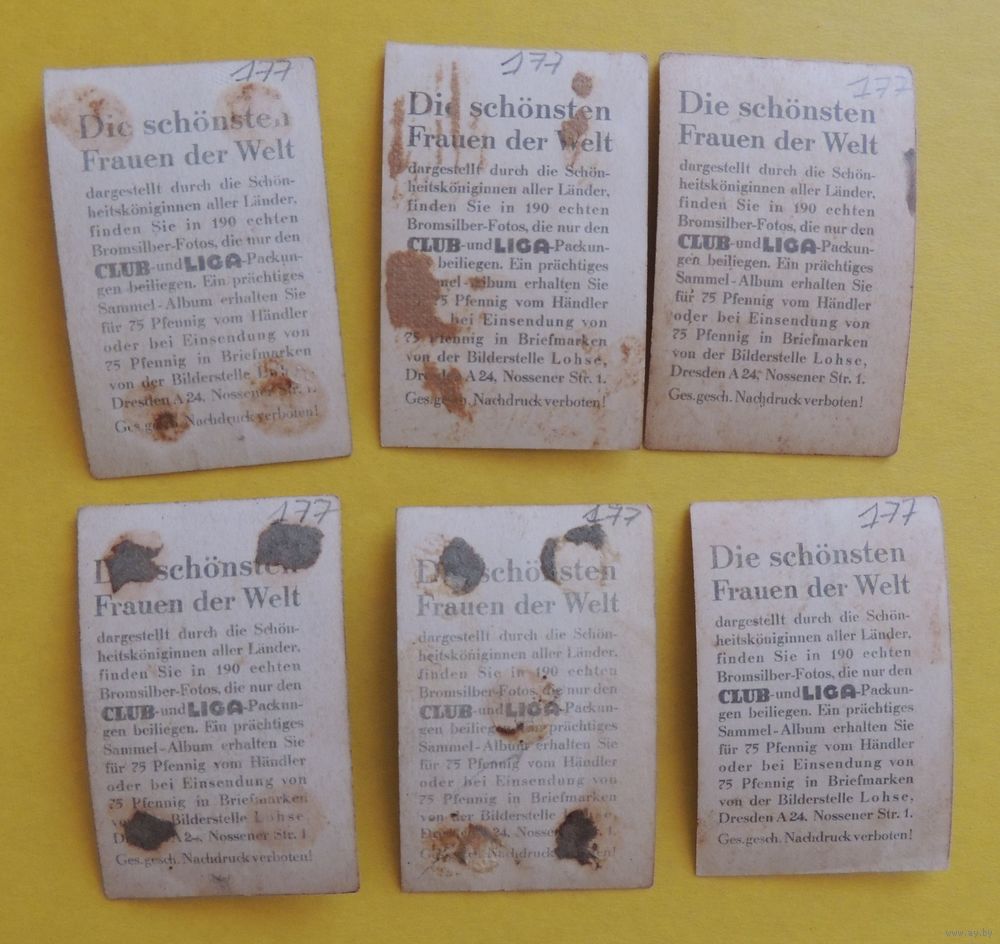 177
Die schönsten
Frauen der Welt
dargestellt durch die Schön-
heitsköniginnen aller Länder,
finden Sie in 190 echten
Bromsilber-Fotos, die nur den
CLUB-und LIGA-Packun-
gen beiliegen. Ein prächtiges
Sammel-Album erhalten Sie
für 75 Pfennig vom Händler
oder bei Einsendung von
75 Pfennig in Briefmarken
von der Bilderstelle
Dresden A 24, Nossener Str. 1.
Ges. gesch. Nachdruck verboten!
177
Die schönsten
Frauen der Welt
dargestellt durch die Schön-
heitsköniginnen aller Länder,
finden Sie in 190 echten
Bromsilber-Fotos, die nur den
CLUB-und LIGA-Packun-
beiliegen. Ein prächtiges
mel-Album erhalten Sie
75 Pfennig vom Händler
bei Einsendung von
75 Pfennig in Briefmarken
von der Bilderstelle Lohse,
Dresden A 24, Nossener Str. 1.
Ges. gesch. Nachdruck verboten!
177
Die schönsten
Frauen der Welt
dargestellt durch die Schön-
heitsköniginnen aller Länder,
finden Sie in 190 echten
Bromsilber-Fotos, die nur den
CLUB-und LIGA-Packun-
gen beiliegen. Ein prächtiges
Sammel-Album erhalten Sie
für 75 Pfennig vom Händler
oder bei Einsendung von
75 Pfennig in Briefmarken
von der Bilderstelle Lohse,
Dresden A 24, Nossener Str. 1.
Ges. gesch. Nachdruck verboten!
177
schönsten
Frauen der Welt
dargestellt durch die Schön-
heitsköniginnen aller Länder,
finden Sie in 190 echten
Bromsilber-Fotos, die nur den
CLUB-und LIGA-Packun-
gen beiliegen. Ein prächtiges
Sammel-Album erhalten Sie
für 75 Pfennig vom Händler
oder bei Einsendung von
75 Pfennig in Briefmarken
Bilderstelle Lohse
Nossener Str. 1
Ges. gesch. Nachdruck verboten!
177
schönsten
Frauen der Welt
dargestellt durch die Schön-
heitsköniginnen aller Länder,
finden Sie in 190 echten
Bromsilber-Fotos, die nur den
CLUB-und LIGA-Packun-
gen beiliegen. Ein prächtiges
Sammel-Album erhalten Sie
für 75 Pfennig vom Händler
oder bei Einsendung von
75 Pfennig in Briefmarken
von der Bilderstelle Lohse,
24, Str. 1.
Nachdruck
177
Die schönsten
Frauen der Welt
dargestellt durch die Schön-
heitsköniginnen aller Länder,
finden Sie in 190 echten
Bromsilber-Fotos, die nur den
CLUB-und LIGA-Packun-
gen beiliegen. Ein prächtiges
Sammel-Album erhalten Sie
für 75 Pfennig vom Händler
oder bei Einsendung von
75 Pfennig in Briefmarken
von der Bilderstelle Lohse,
Dresden A 24, Nossener Str. 1.
Ges. gesch. Nachdruck verboten!
www.ay.by